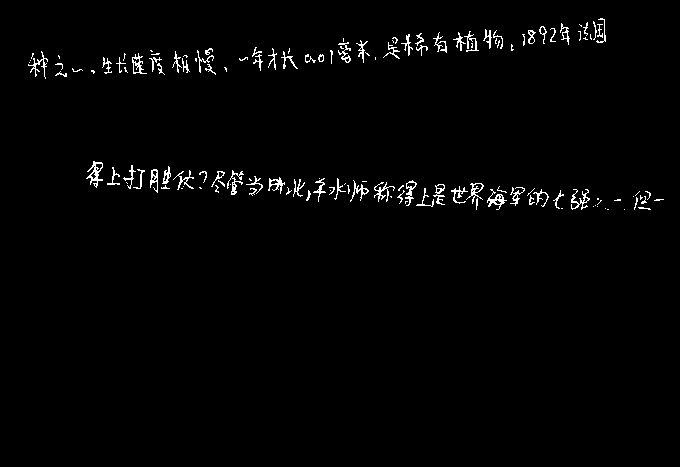 种之一。生长速度极慢、一年才长0.01毫米.是稀有植物。1892年法国
得上打胜仗?尽管当时北洋水师称得上是世界海军的七强之一.但一